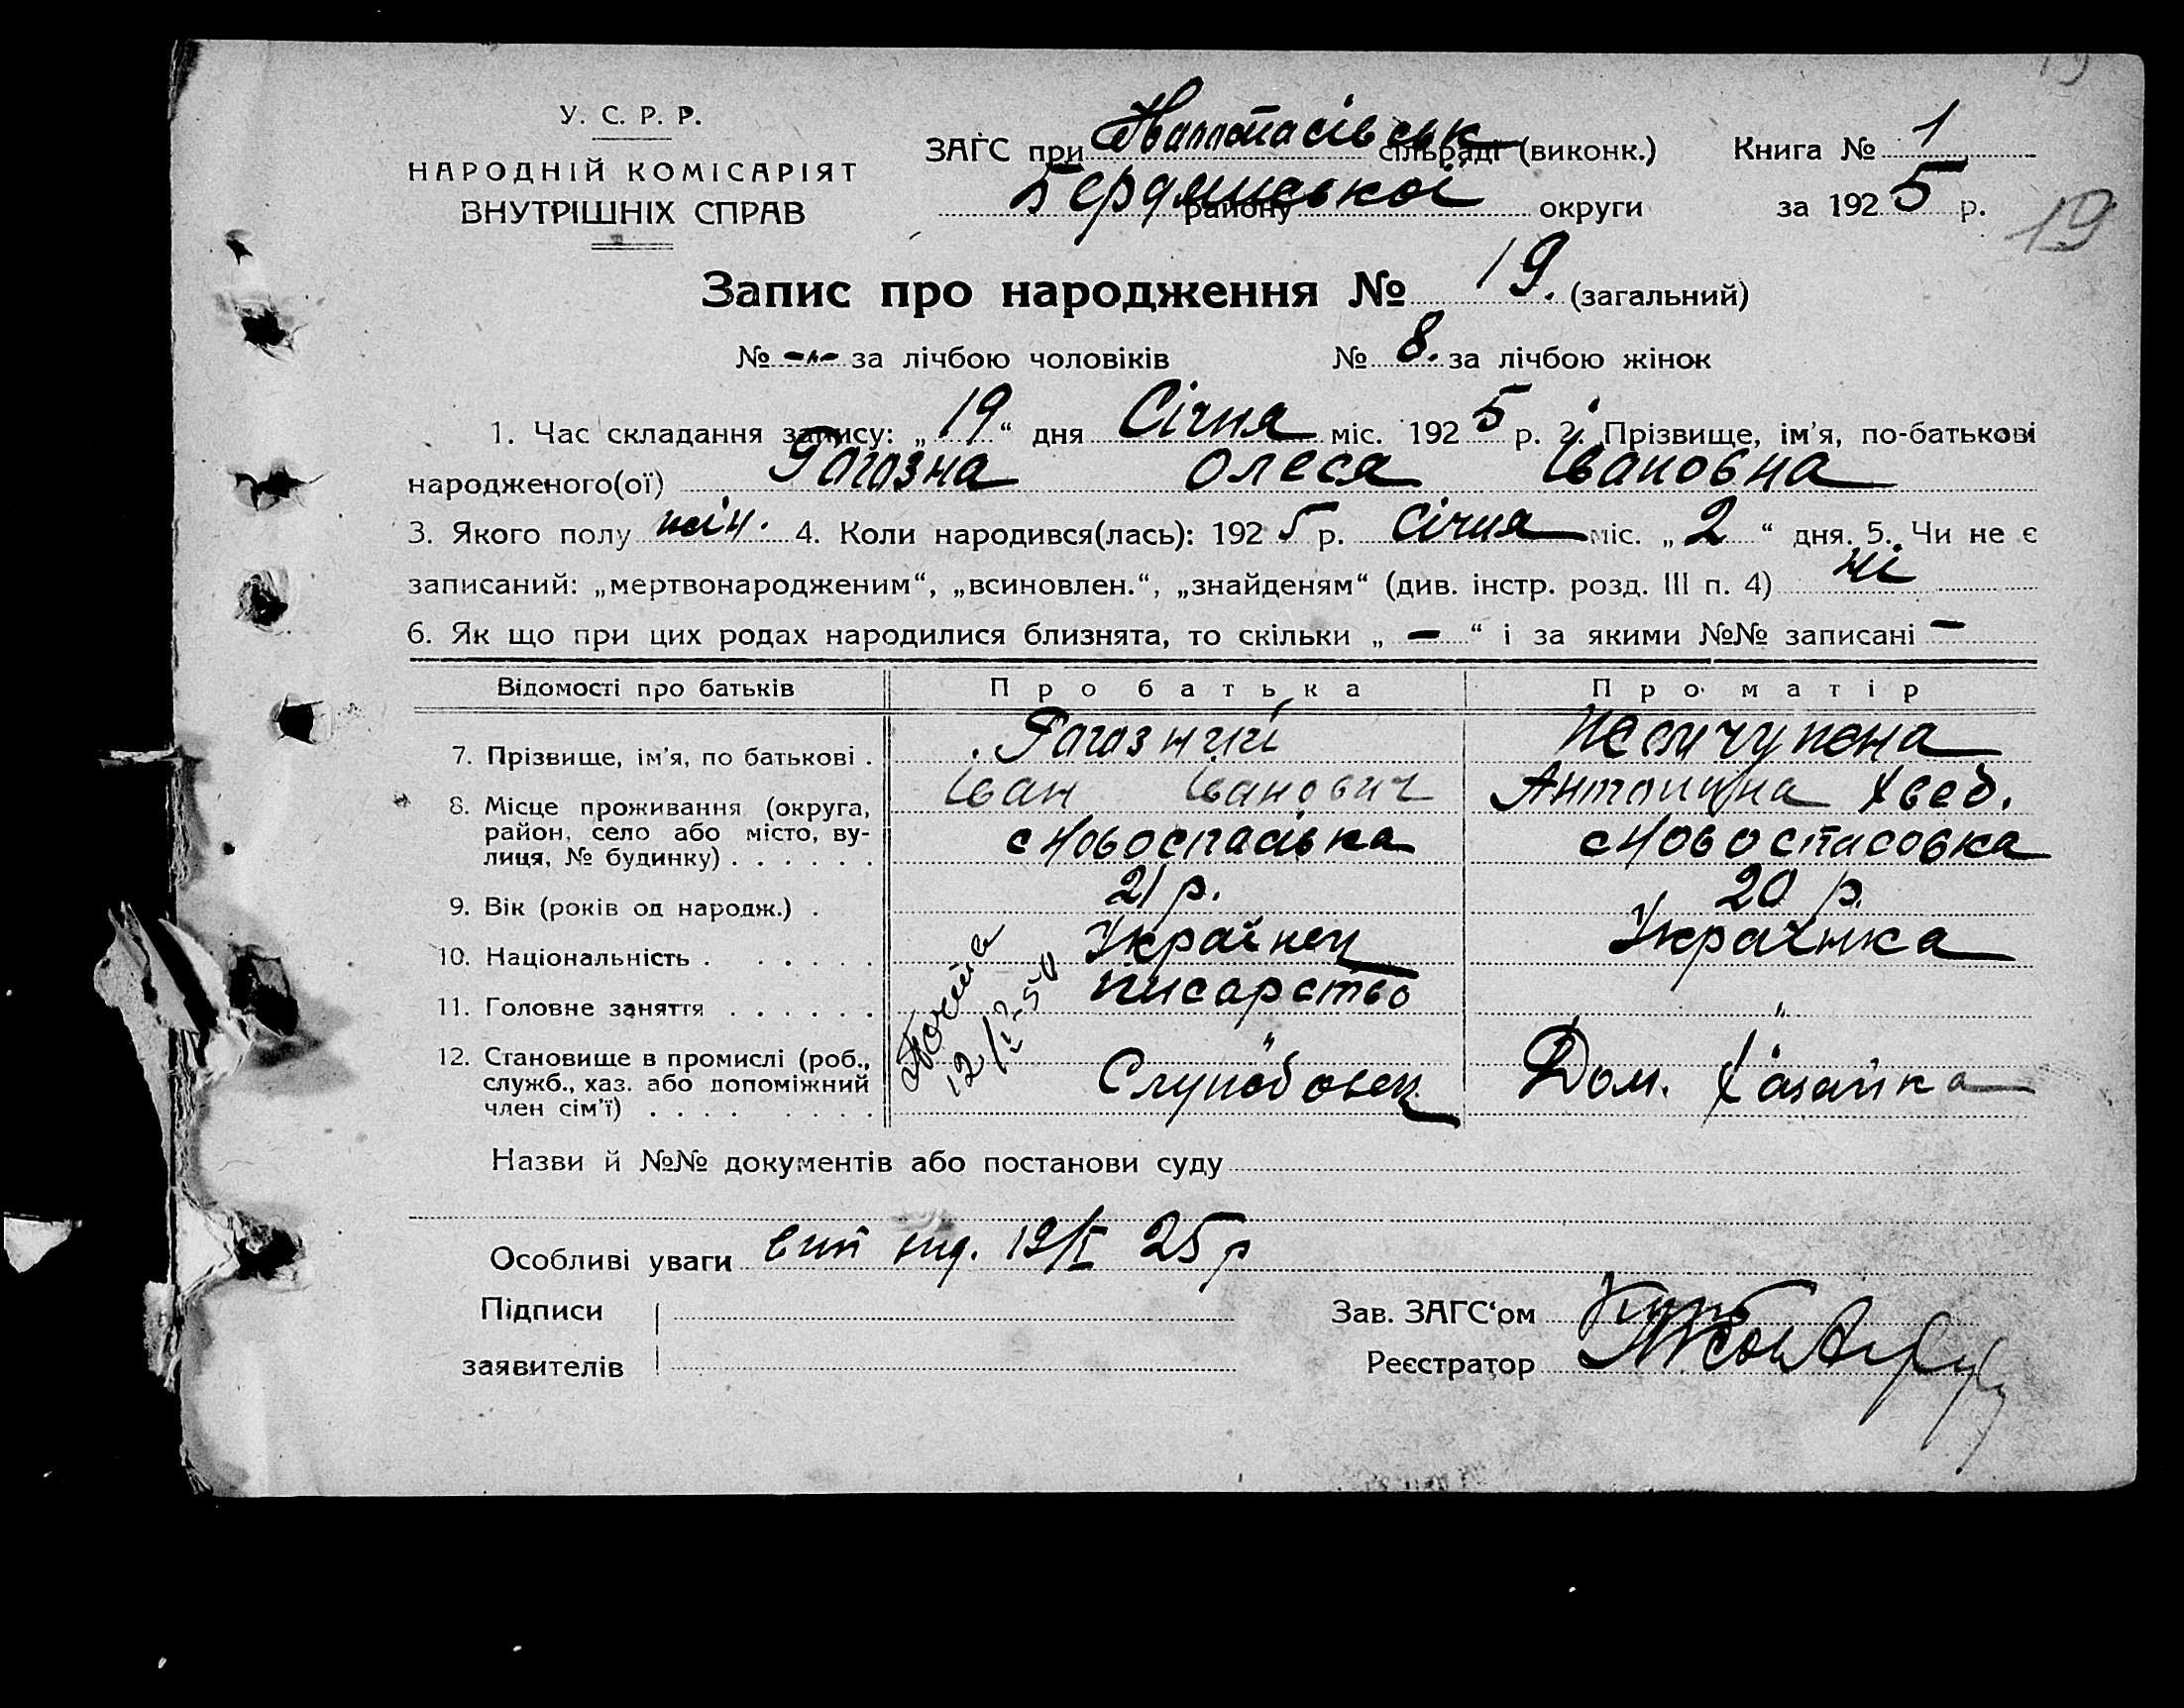 У. С. Р. Р.
НАРОДНІЙ КОМІСАРІЯТ
ВНУТРІШНІХ СПРАВ
ЗАГС при сільраді (виконк.) Книга № 1
Бердянської району округи за 1925 р.
19
Запис про народження № 19. (загальний)
№ -"- за лічбою чоловіків № 8. за лічбою жінок
1. Час складання запису: „19“ дня Січня міс. 1925 р. 2. Прізвище, ім'я, по-батькові
народженого(ої) Рагозна Олеся Івановна
3. Якого полу жін. 4. Коли народився(лась): 1925 р. Січня міс. „2“ дня. 5. Чи не є
записаний: „мертвонародженим“, „всиновлен.“, „знайденям“ (див. інстр. розд. III п. 4) ні
6. Як що при цих родах народилися близнята, то скільки „ — “ і за якими №№ записані —
Відомості про батьків Про батька Про матір
7. Прізвище, ім'я, по батькові . Рагозний
Іван Іванович Антонина Хвед.
8. Місце проживання (округа, район, село або місто, вулиця, № будинку) . . . . . . с Новоспасівка с Новоспасовка
9. Вік (років од народж.) . 21 р. 20 р.
10. Національність . . . . . . Українец Українка
11. Головне заняття . . . . . . писарство "
12. Становище в промислі (роб., служб., хаз. або допоміжний член сім'ї) . . . . . . " Службовец Дом. Хазайка
Назви й №№ документів або постанови суду
Особливі уваги 19/I 25 р
Підписи
заявителів
Зав. ЗАГС'ом
Реєстратор